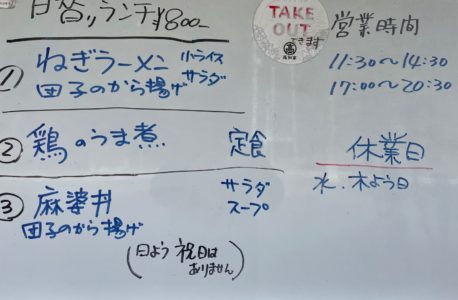 日替りランチ ¥800-
① ねぎラーメン 小ライス
団子のから揚げ サラダ
② 鶏のうま煮 定食
③ 麻婆丼 サラダ
団子のから揚げ スープ
(日よう 祝日は
ありません)
TAKE
OUT
できます
営業時間
11:30〜14:30
17:00〜20:30
休業日
水.木よう日